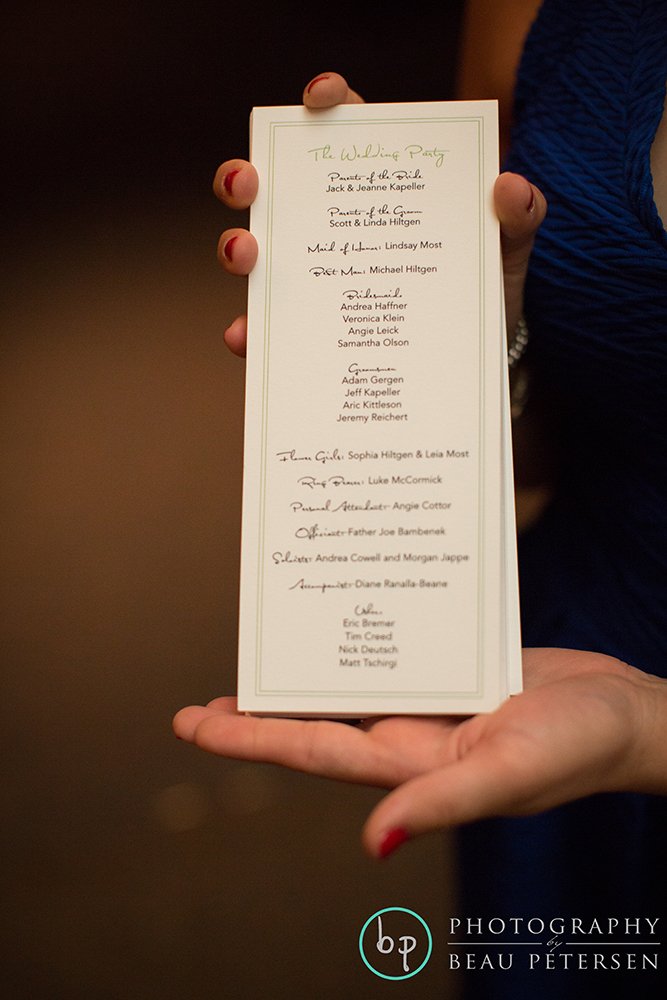 The Wedding Party
Parents of the Bride
Jack & Jeanne Kapeller
Parents of the Groom
Scott & Linda Hiltgen
Maid of Honor: Lindsay Most
Best Man: Michael Hiltgen
Bridesmaids
Andrea Haffner
Veronica Klein
Angie Leick
Samantha Olson
Groomsmen
Adam Gergen
Jeff Kapeller
Aric Kittleson
Jeremy Reichert
Flower Girls: Sophia Hiltgen & Leia Most
Ring Bearer: Luke McCormick
Personal Attendant: Angie Cottor
Officiant: Father Joe Bambenek
Soloists: Andrea Cowell and Morgan Jappe
Accompanist: Diane Ranalla-Beane
Ushers
Eric Bremer
Tim Creed
Nick Deutsch
Matt Tschirgi
bp
PHOTOGRAPHY
by
BEAU PETERSEN